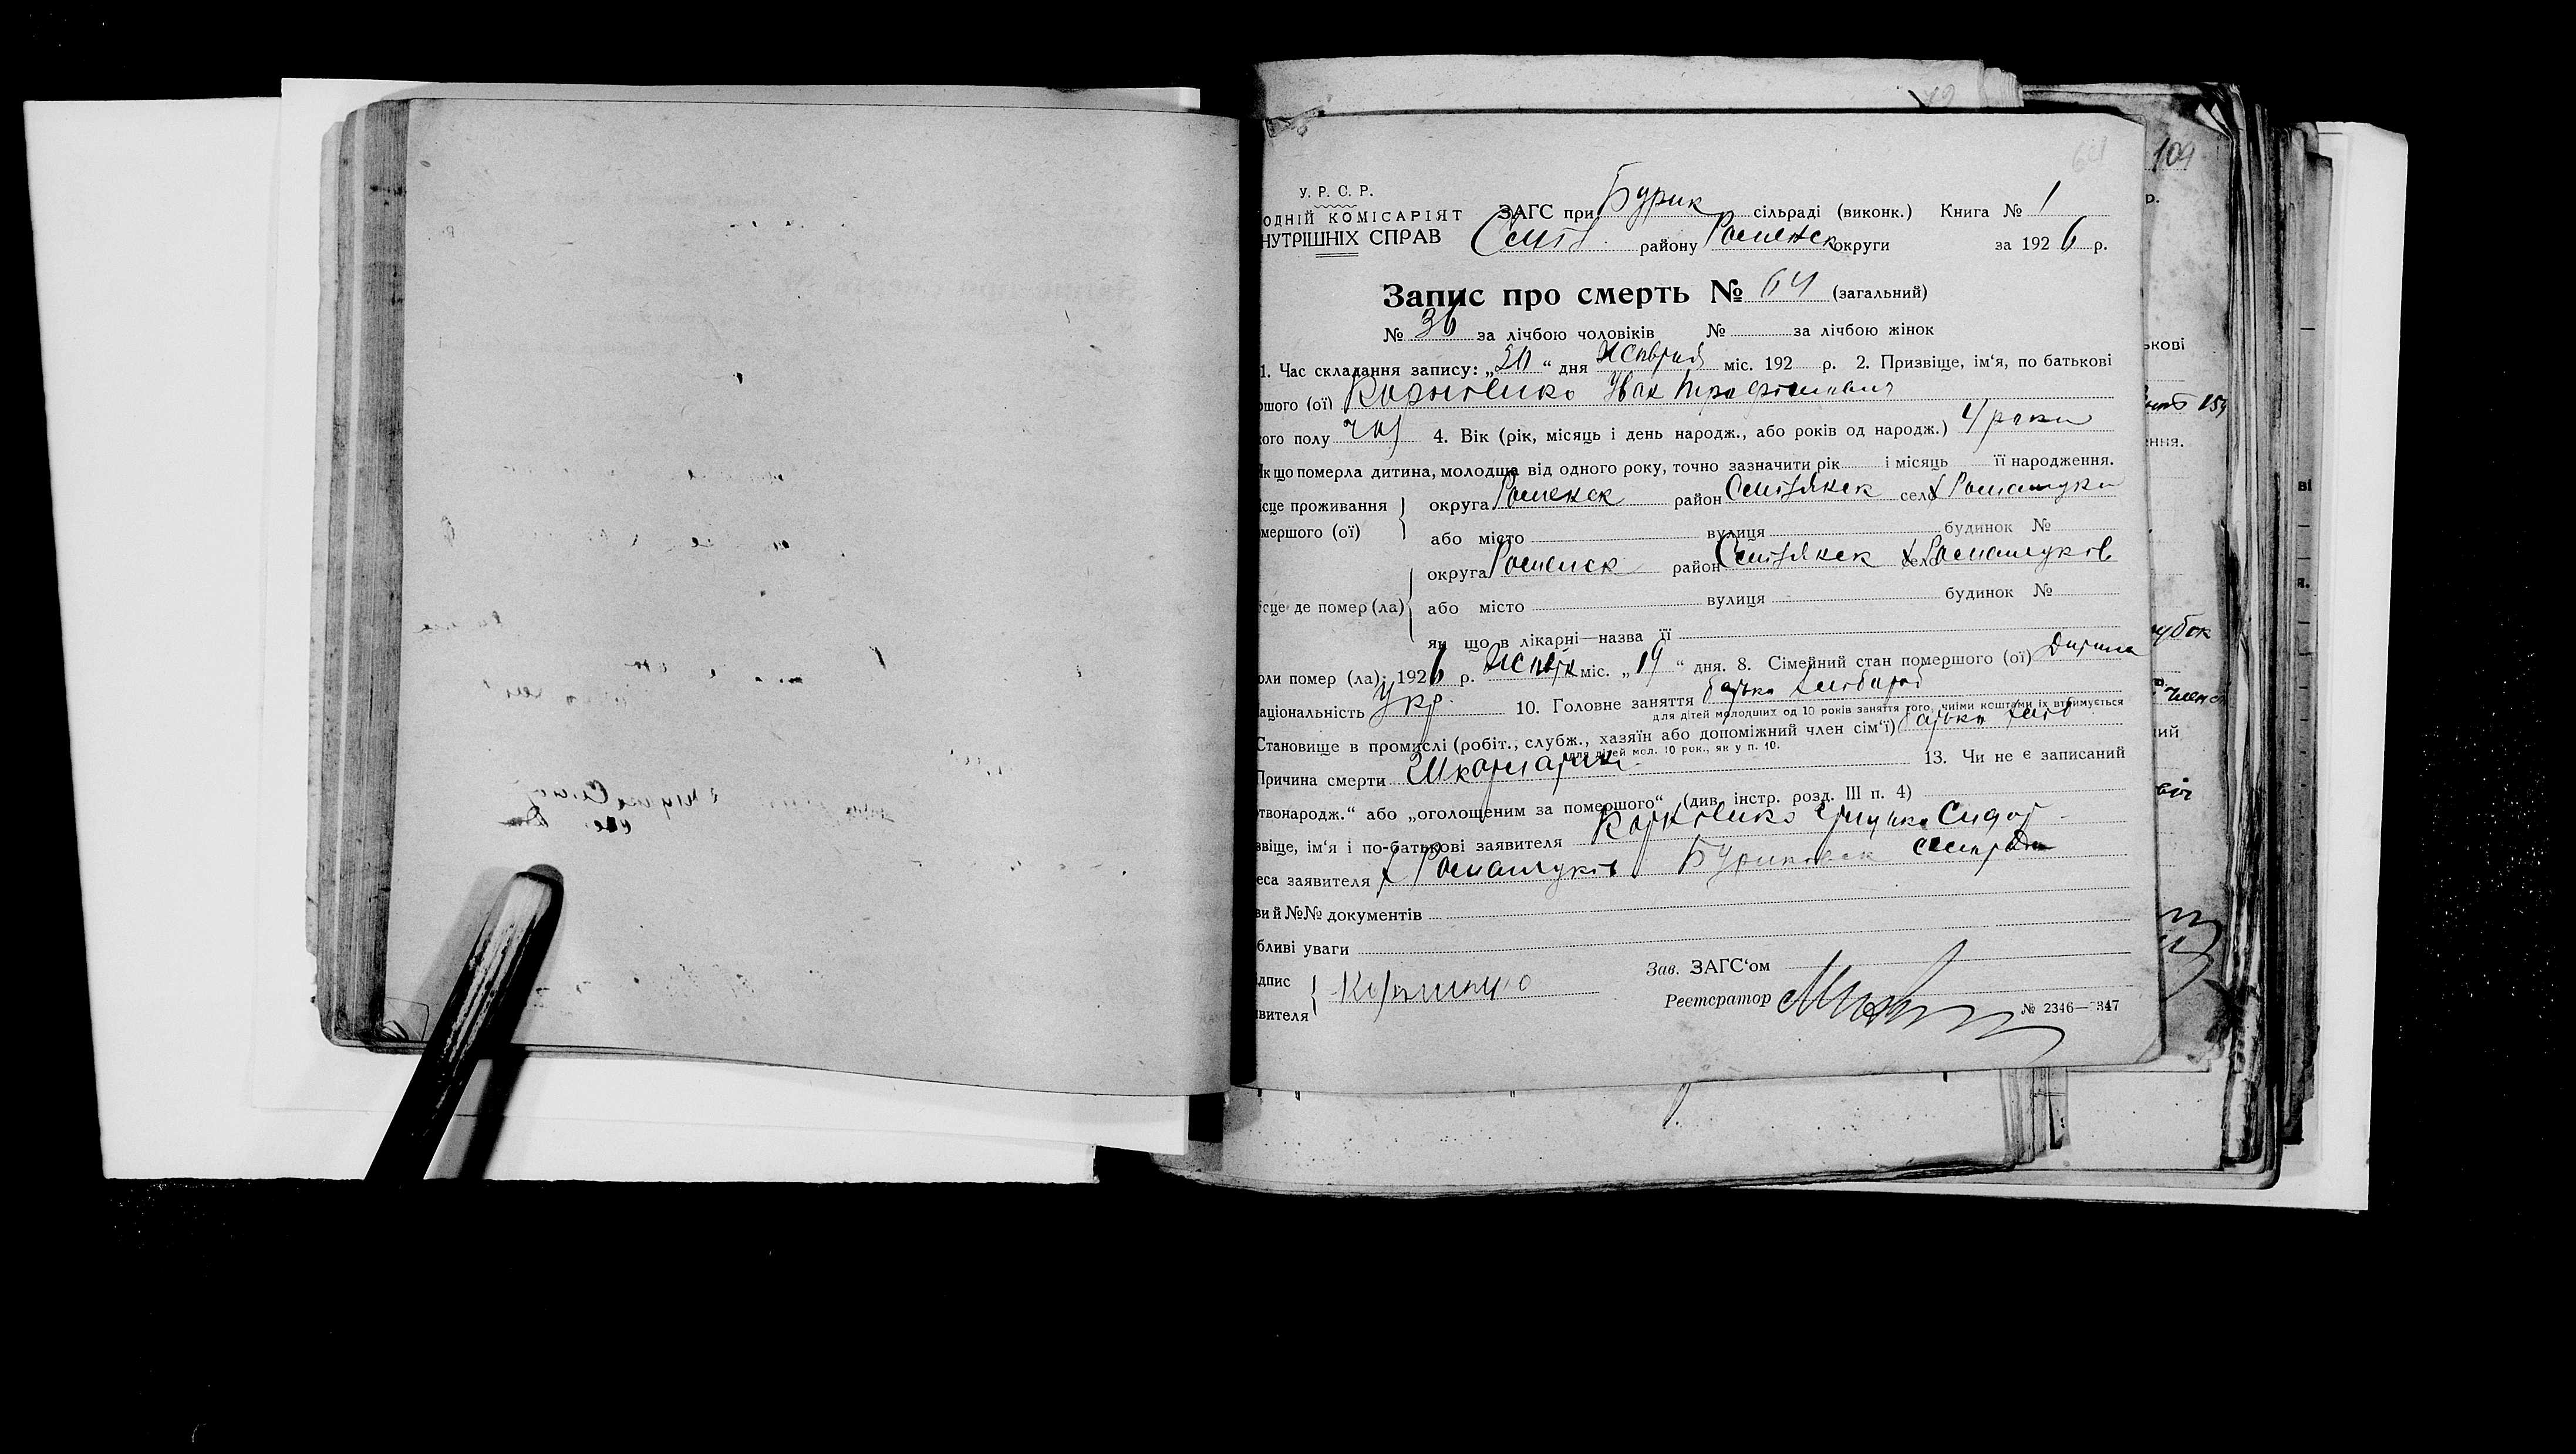 104
У. Р. С. Р.
ОДНІЙ КОМІСАРІЯТ
НУТРІШНІХ СПРАВ
ЗАГС при Бурик сільраді (виконк.) Книга № 1
району Роменск округи за 1926 р.
Запис про смерть № 64 (загальний)
№ 36 за лічбою чоловіків № за лічбою жінок
1. Час складання запису: „20“ дня міс. 192 р. 2. Призвіще, ім‘я, по батькові
ршого (ої) Корниенко Иван Трофимович
кого полу чол 4. Вік (рік, місяць і день народж., або років од народж.) 4 роки
Якщо померла дитина, молодша від одного року, точно зазначити рік і місяць її народження.
ісце проживання округа Роменск район село х Ромашуки
мершого (ої) або місто вулиця будинок №
округа Роменск район село х Ромашуків
ісце де помер (ла) або місто вулиця будинок №
як що в лікарні—назва її
оли помер (ла): 1926 р. міс. „19“ дня. 8. Сімейний стан помершого (ої) Дитина
аціональність Укр. 10. Головне заняття батько хлібороб
для дітей молодших од 10 років заняття того, чиїми коштами їх втримується
Становище в промислі (робіт., службж., хазяїн або допоміжний член сім‘ї) батько хліб
для дітей мол. 10 рок., як у п. 10.
Причина смерти Шкарлатина 13. Чи не є записаний
твонародж.“ або „оголошеним за помершого“ (див. інстр. розд. III п. 4)
звіще, ім‘я і по-батькові заявителя Корниенко Грицько Сидор
еса заявителя х Ромашуків сільради
вий №№ документів
бливі уваги
дпис
явителя
Зав. ЗАГС‘ом
Реєстратор
№ 2346—347